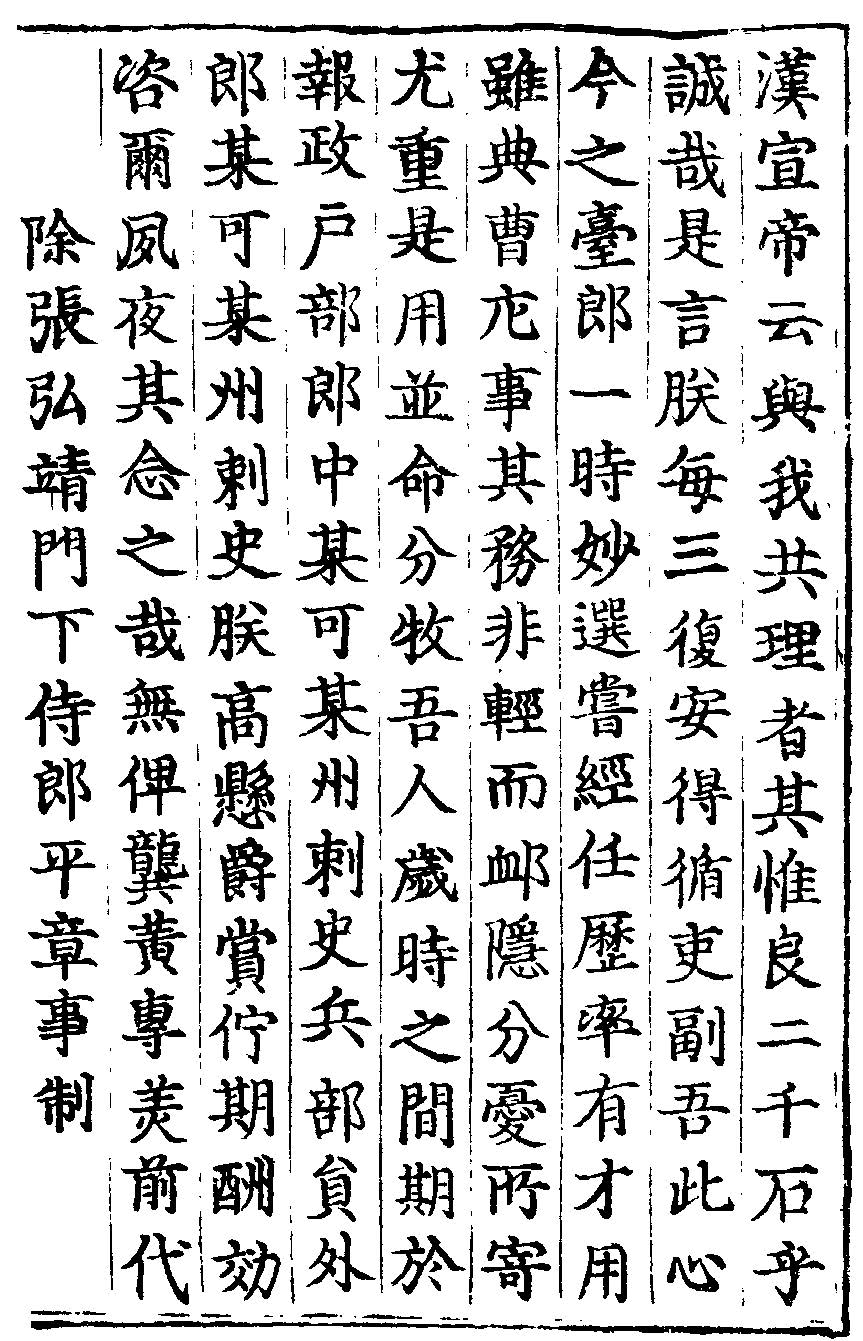 漢宣帝云與我共理者其惟良二千石乎
誠哉是言朕每三復安得循吏副吾此心
今之臺郎一時妙選嘗經任歷率有才用
雖典曹庀事其務非輕而衈隱分憂所寄
尤重是用並命分牧吾人歲時之間期於
報政戶部郎中某可某州刺史兵部貟外
郎某可某州刺史朕高懸爵賞佇期酬効
咨爾夙夜其念之哉無俾龔黄專美前代
除張弘靖門下侍郎平章事制